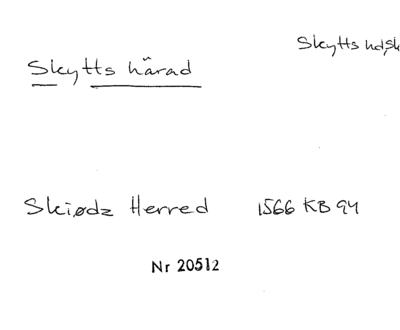 Skytts hd, Sk
Skytts härad
Skiødz Herred 1566 KB 94
Nr 20512